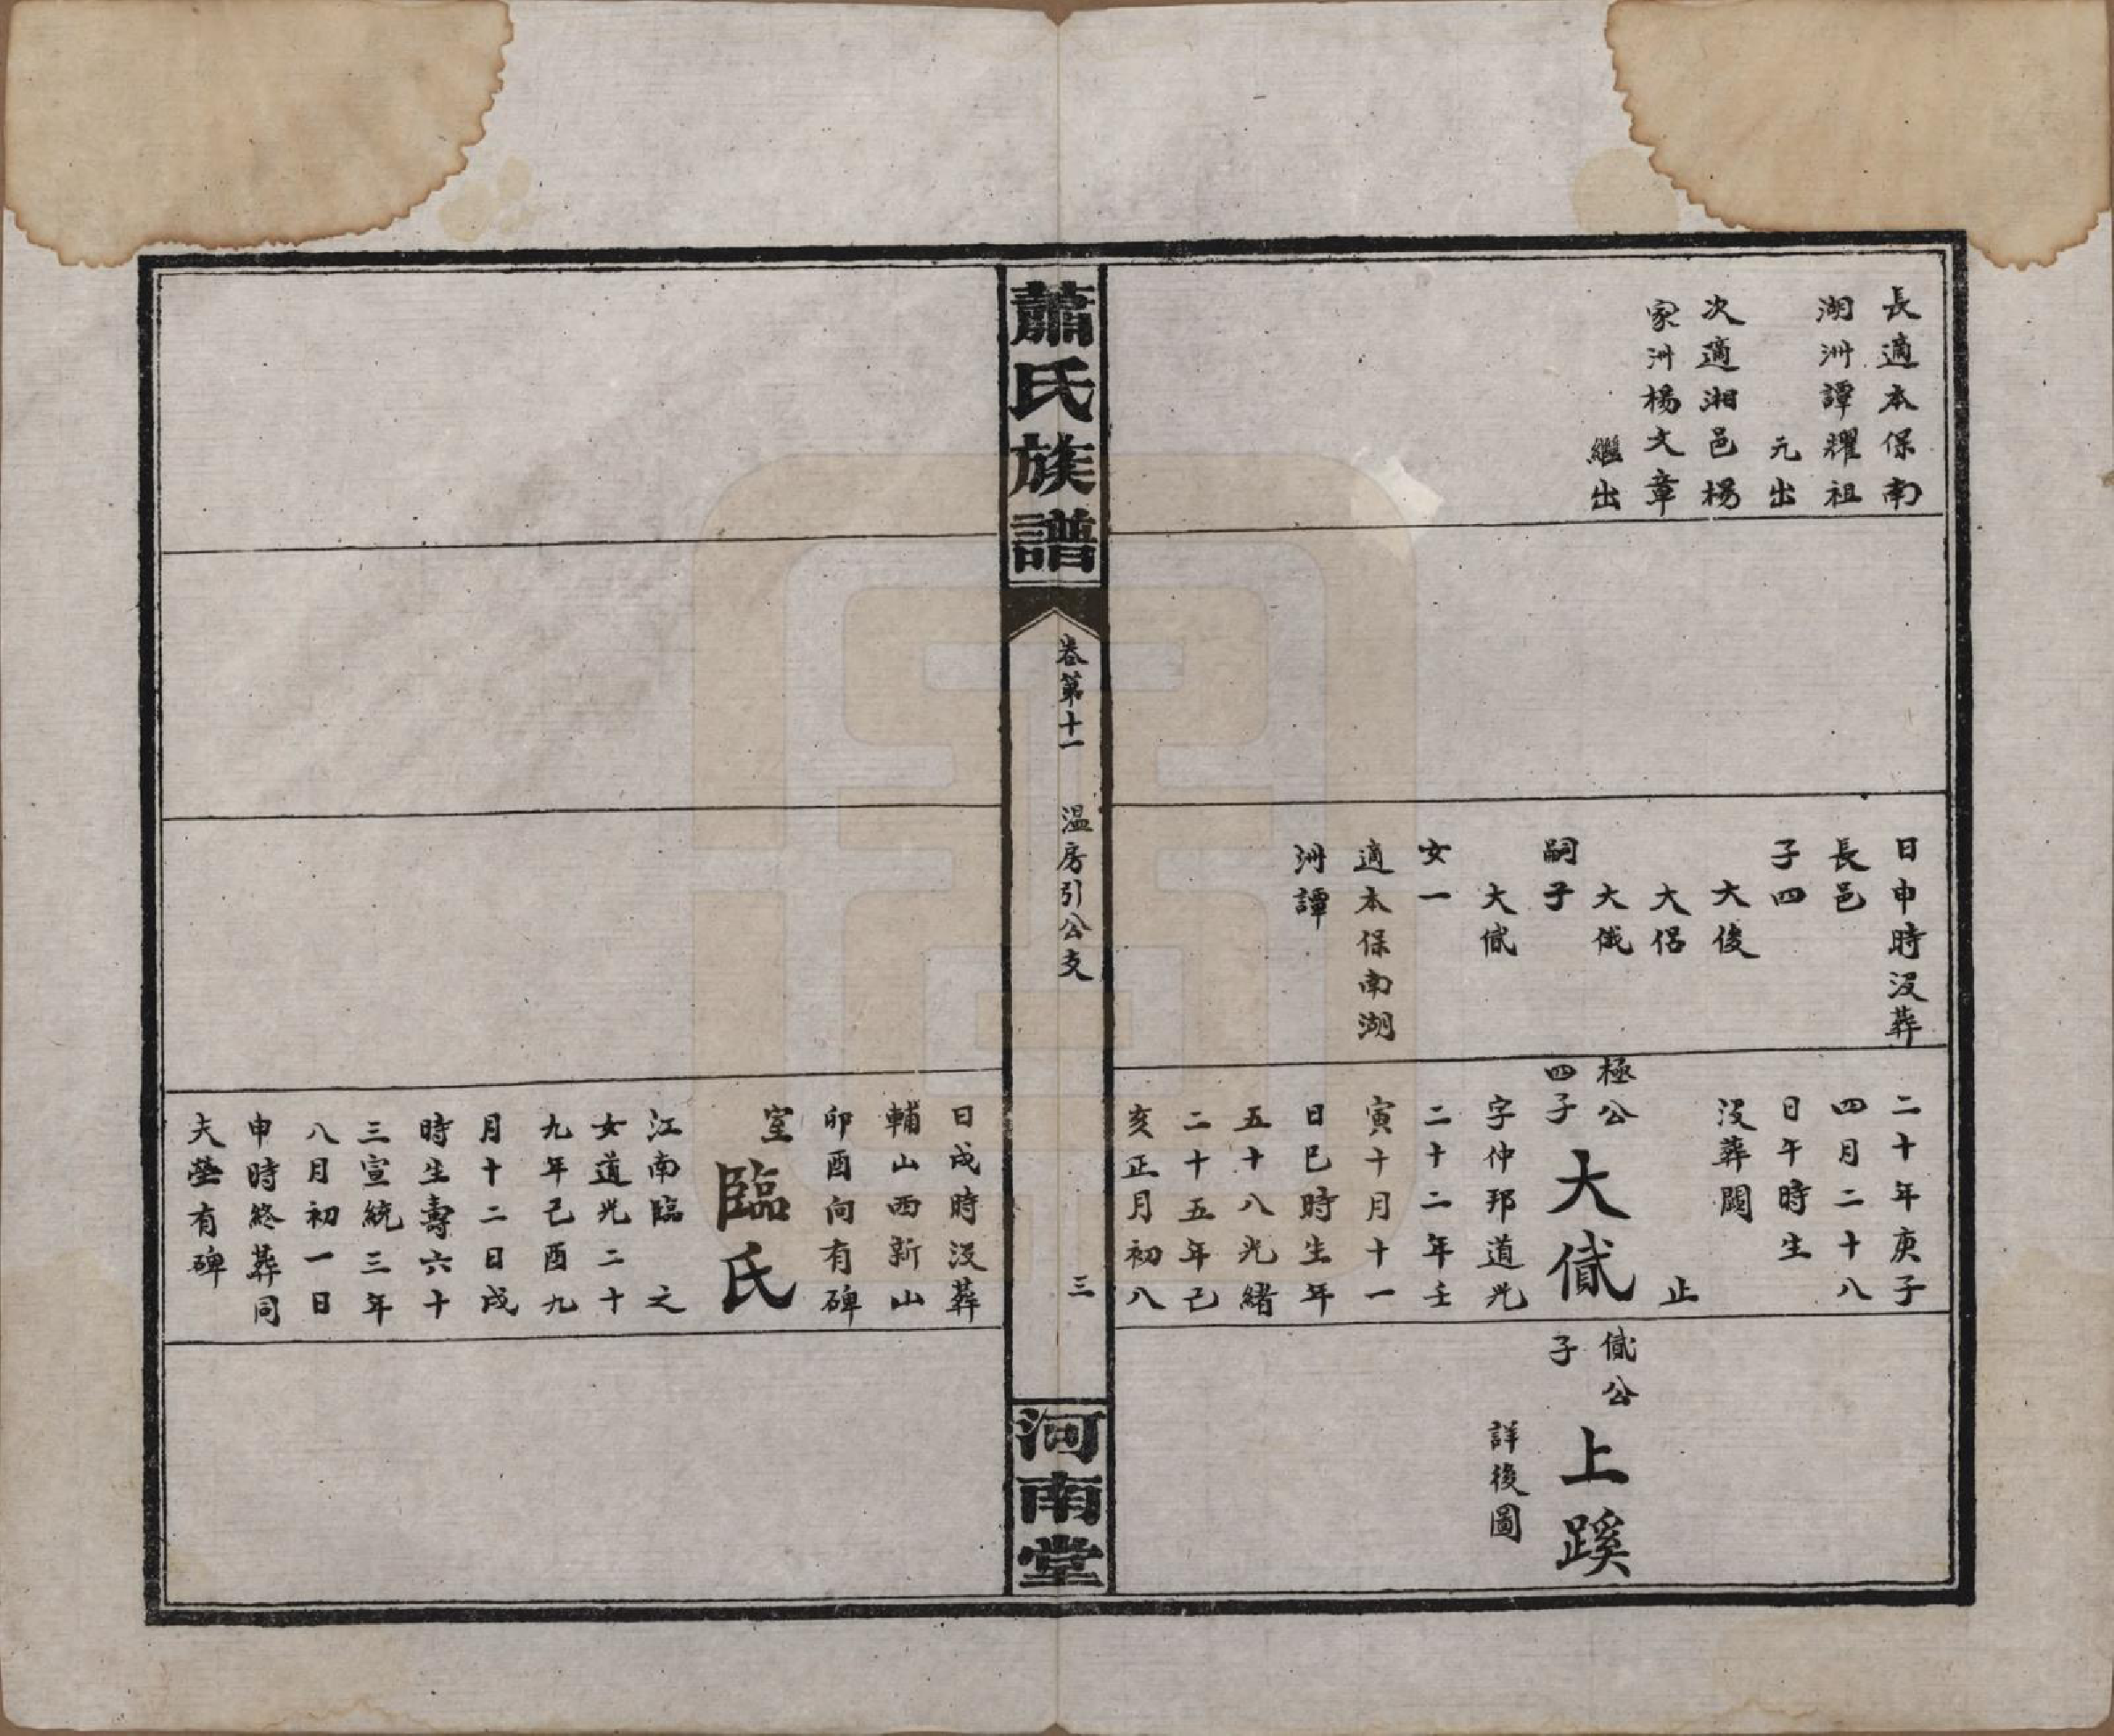 長適本保南
湖洲譚耀祖
元出
次適湘邑楊
家洲楊文章
繼出
日申時没葬
長邑
子四
大後
大侶
大俄
嗣子
大貳
女一
適本保南湖
洲譚
二十年庚子
四月二十八
日午時生
没葬闕
止
極公
四子
大貳
字仲邦道光
二十二年壬
寅十月十一
日巳時生年
五十八光緒
二十五年己
亥正月初八
公
子
上蹊
詳後圖
蕭氏族譜
卷第十一
温房引公支
三
河南堂
日戍時没葬
輔山西新山
卯酉向有碑
室
臨氏
江南臨之
女道光二十
九年己酉九
月十二日戍
時生壽六十
三宣統三年
八月初一日
申時終葬同
夫塋有碑